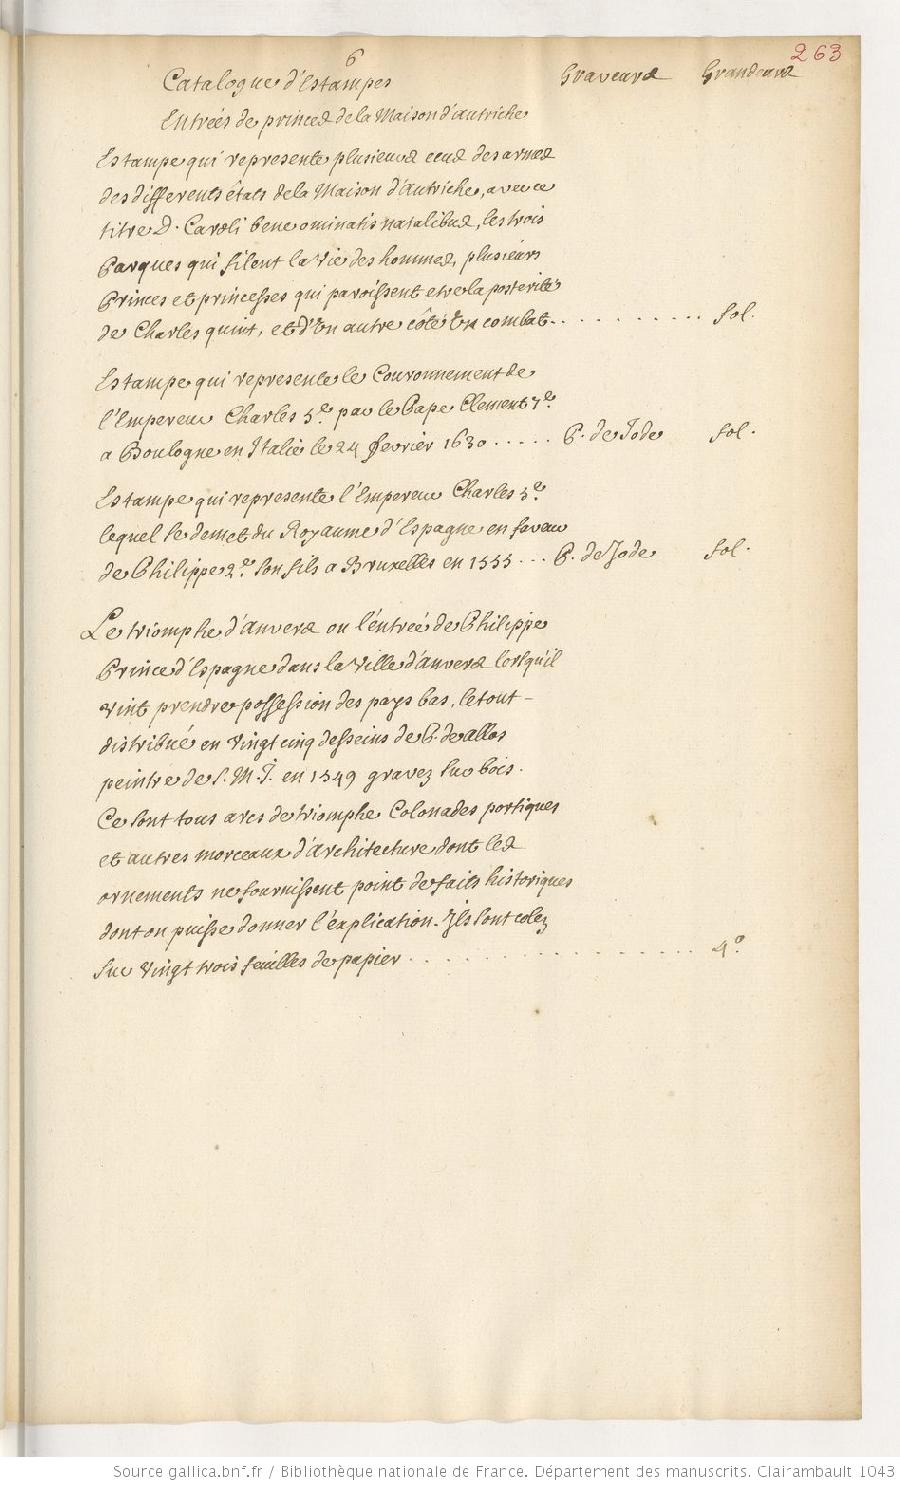 6
263
Catalogue d'Estampes Graveurs Grandeurs
Entrées de princes de la Maison d'autriche
Estampe qui represente plusieurs ecus des armes
des differents états de la Maison d'autriche, avec ce
titre D. Caroli bene ominatis natalibus, les trois
Parques qui filent la vie des hommes, plusieurs
Princes et princesses qui paroissent etre la posterité
de Charles quint, et d'Un autre côté Un combat. . . . . . . . . . . fol.
Estampe qui represente le Couronnement de
l'Empereur Charles 5.e par le Pape Clement 7.e
a Boulogne en Italie le 24 fevrier 1630 . . . . . P. de Jode fol.
Estampe qui represente l'Empereur Charles 5.e
lequel se demet du Royaume d'Espagne en faveur
de Philippe 2.e son fils a Bruxelles en 1555 . . . P. de Jode fol.
Le triomphe d'anvers ou l'entrée de Philippe
Prince d'Espagne dans la ville d'anvers lorsquil
vint prendre possession des pays bas, le tout -
distribué en vingt cinq desseins de P. de allos
peintre de S. M. I. en 1549 gravez sur bois.
Ce sont tous arcs de triomphe Colonades portiques
et autres morceaux d'architecture dont les
ornements ne fournissent point de faits historiques
dont on puisse donner l'explication. Ils sont colez
sur vingt trois feuilles de papier . . . . . . . . . . . . . . . . . 4.o
Source gallica.bnf.fr / Bibliothèque nationale de France. Département des manuscrits. Clairambault 1043